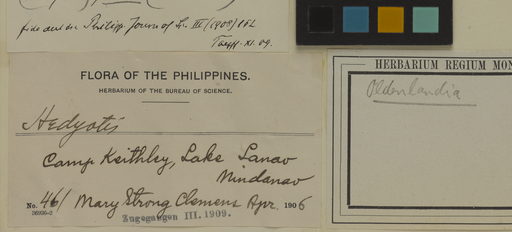 Philipp. Journ. of Sc. III (1908)
XI. 09.
FLORA OF THE PHILIPPINES.
HERBARIUM OF THE BUREAU OF SCIENCE.
Hedyotis
Camp Keithley, Lake Lanao
Mindanao
No. 461 Mary Strong Clemens Apr. 1906
36936—2
Zugegangen III. 1909.
HERBARIUM REGIUM MON
Oldenlandia